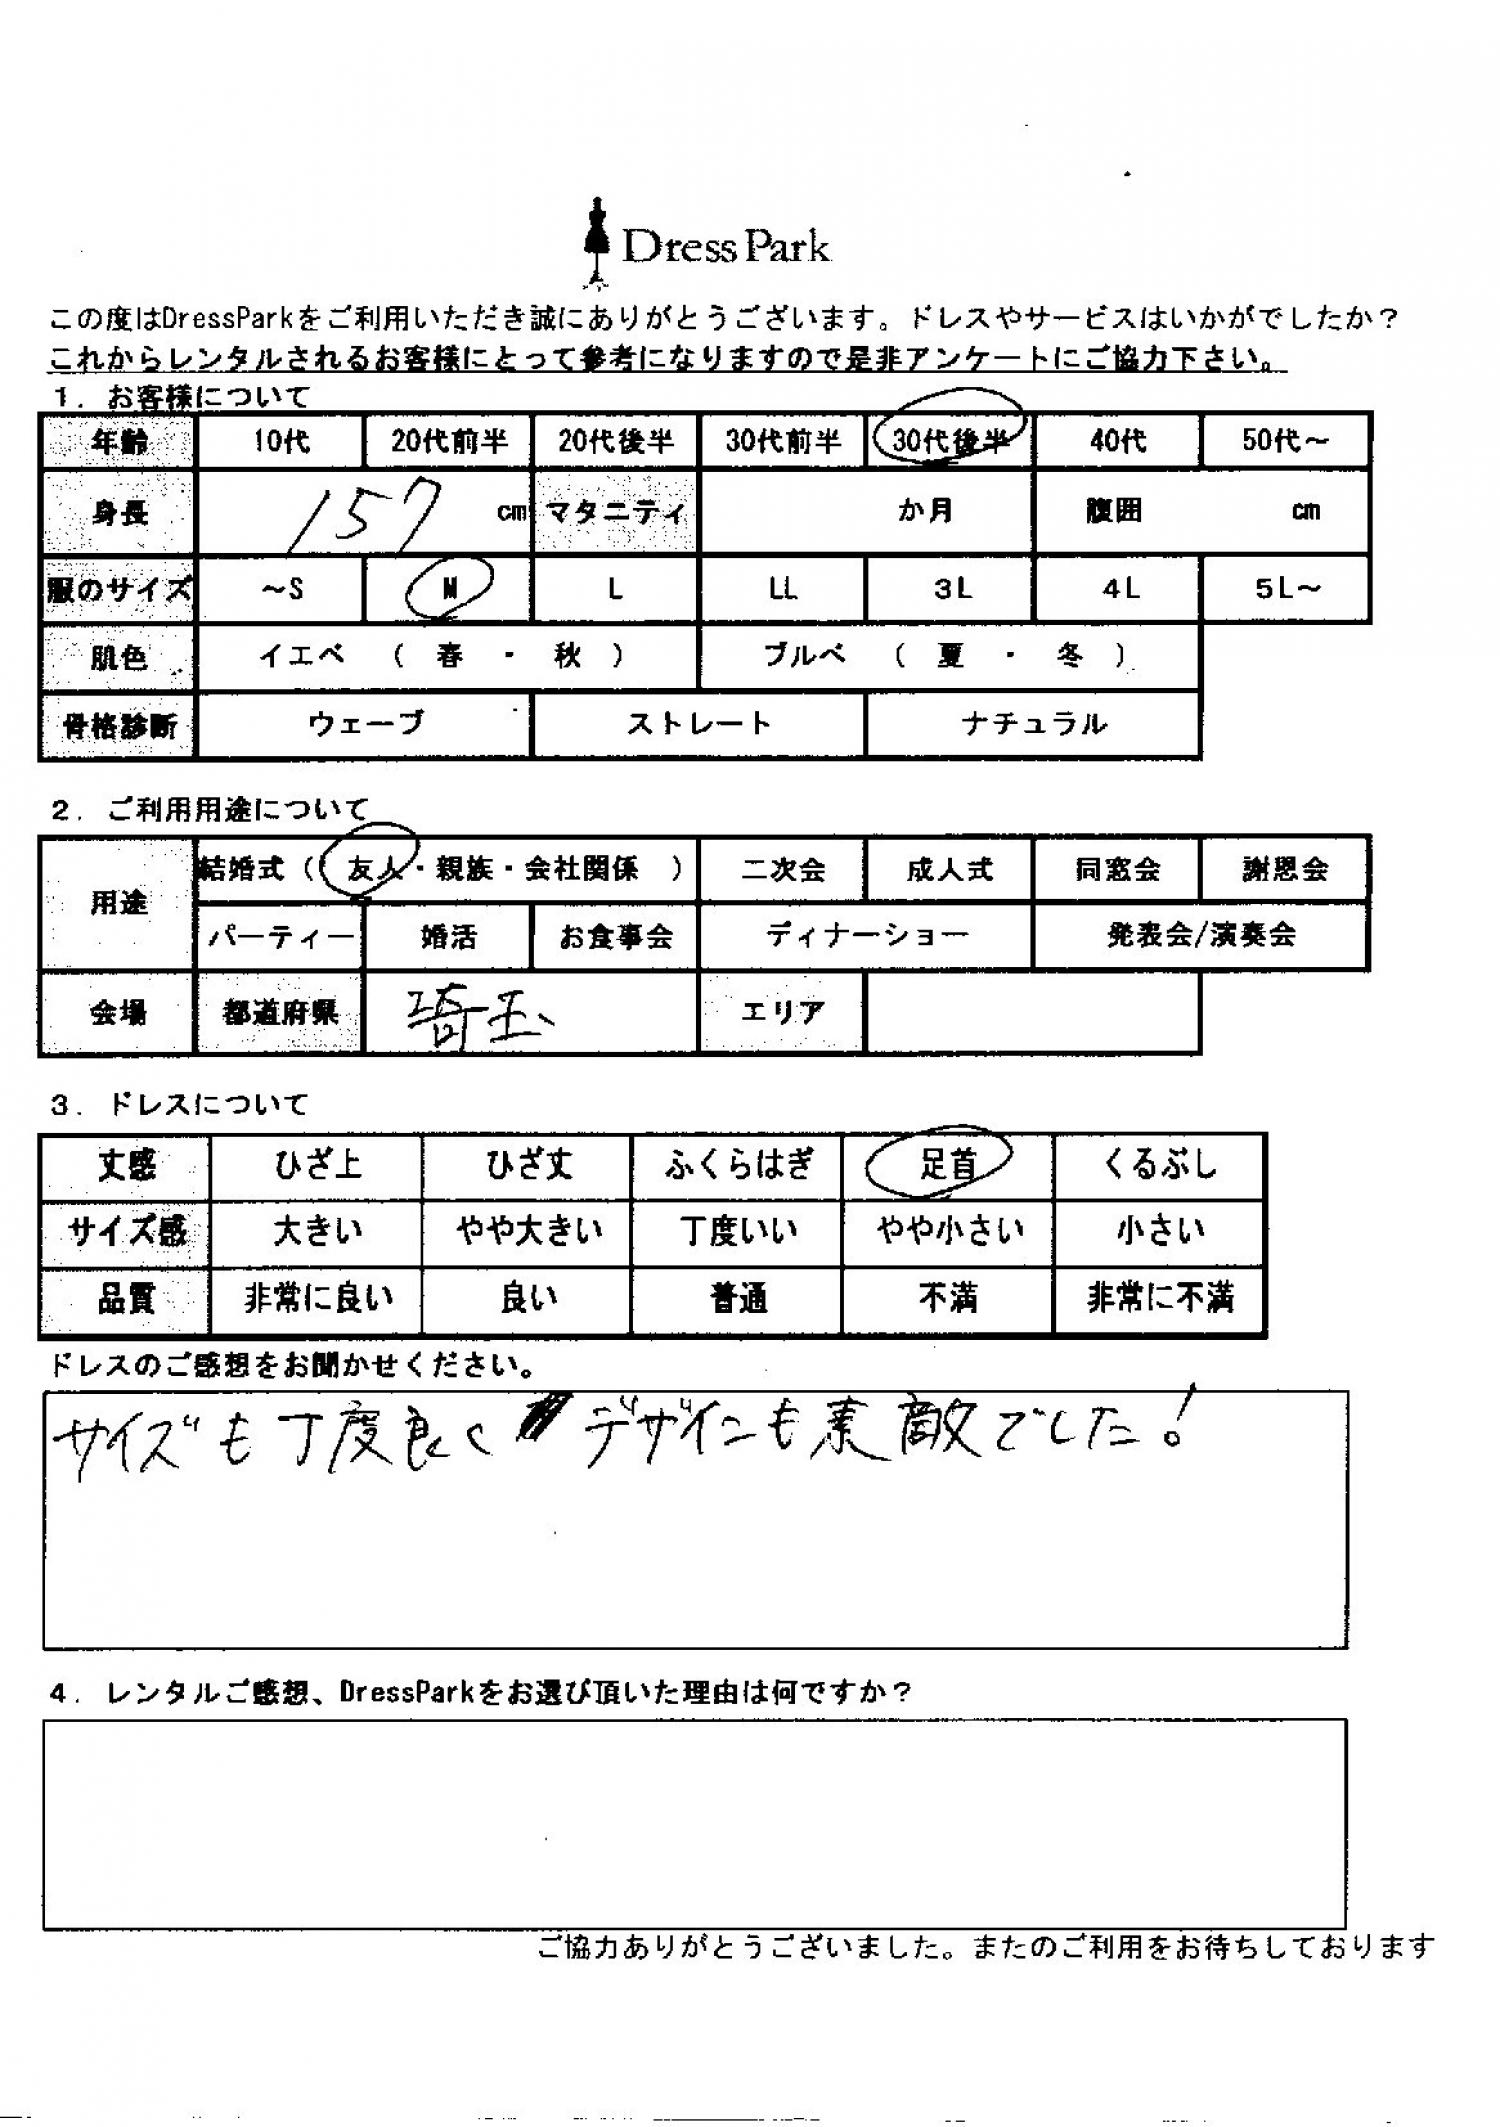 Dress Park
この度はDressParkをご利用いただき誠にありがとうございます。ドレスやサービスはいかがでしたか？
これからレンタルされるお客様にとって参考になりますので是非アンケートにご協力下さい。
1. お客様について
年齢 10代 20代前半 20代後半 30代前半 30代後半 40代 50代～
身長 157 cm マタニティ か月 腹囲 cm
服のサイズ ～S M L LL 3L 4L 5L～
肌色 イエベ ( 春 ・ 秋 ) ブルベ ( 夏 ・ 冬 )
骨格診断 ウェーブ ストレート ナチュラル
2. ご利用用途について
用途 結婚式 ( 友人・親族・会社関係 ) 二次会 成人式 同窓会 謝恩会
パーティー 婚活 お食事会 ディナーショー 発表会/演奏会
会場 都道府県 埼玉 エリア
3. ドレスについて
丈感 ひざ上 ひざ丈 ふくらはぎ 足首 くるぶし
サイズ感 大きい やや大きい 丁度いい やや小さい 小さい
品質 非常に良い 良い 普通 不満 非常に不満
ドレスのご感想をお聞かせください。
サイズも丁度良く デザインも素敵でした！
4. レンタルご感想、DressParkをお選び頂いた理由は何ですか？
ご協力ありがとうございました。またのご利用をお待ちしております